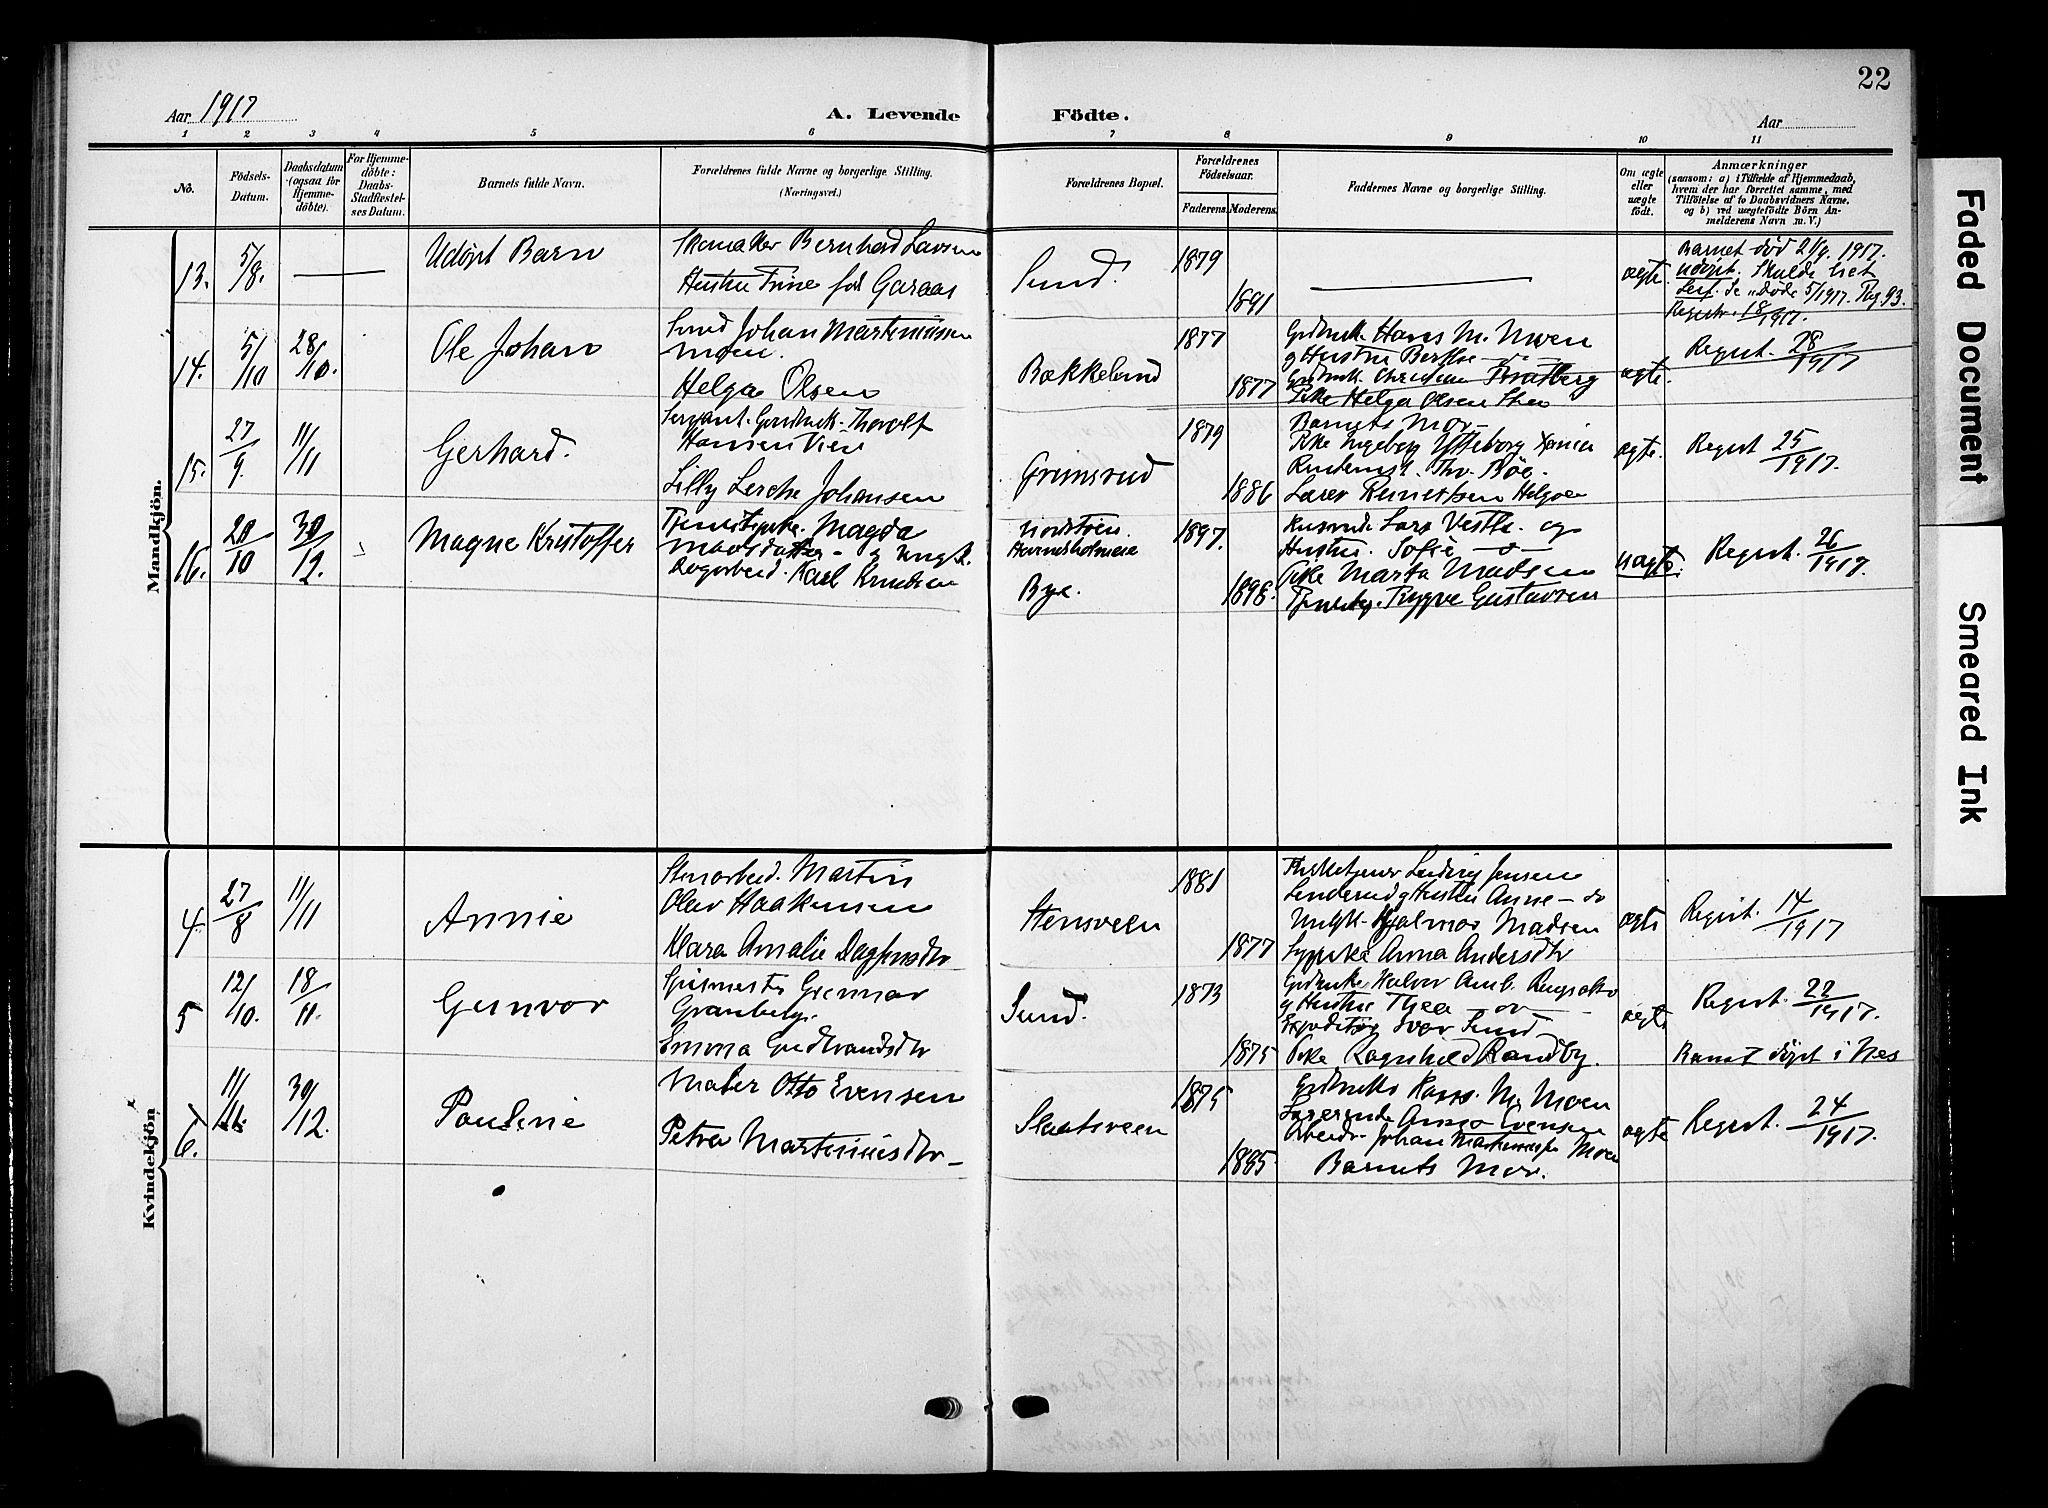 22
Aar 1917
A. Levende Födte.
Aar
1 2 3 4 5 6 7 8 9 10 11
No.
Födsels-Datum.
Daabsdatum (ogsaa for Hjemmedöbte).
For Hjemmedöbte: Daabs-Stadfestelses Datum.
Barnets fulde Navn.
Forældrenes fulde Navne og borgerlige Stilling.
(Næringsvei.)
Forældrenes Bopæl.
Forældrenes Födselsaar.
Faderens. Moderens.
Faddernes Navne og borgerlige Stilling.
Om ægte eller uægte födt.
Anmærkninger
(saasom: a) i Tilfælde af Hjemmedaab, hvem der har forrettet samme, med Tilföielse af to Daabsvidners Navne, og b) ved uægtefödte Börn Anmelderens Navn m. V.)
Mandkjön.
13. 5/8. — Udöpt Barn
Skomaker Bernhard Larsen
Hustru Trine fød Garaas
Sund. 1879 1891 — ægte.
Barnet død 21/9. 1917.
udöpt. Skulde het
Leif. Se "Døde 5/1917. Pag. 93.
Registr. 18/1917.
14. 5/10 28/10. Ole Johan
Smed Johan Martiniussen
Moen.
Helga Olsen
Bækkelund 1877 1877
Grdbruk. Hans M. Moen
og Hustru Berthe
Grdbruk. Christian
Pike Helga Olsen
ægte. Regist. 28/1917
15. 27/9. 11/11 Gerhard.
Sergeant. Gardbruk. Thorolf
Hansen Vien
Lilly Lerche Johansen
Grimsrud 1879 1886
Barnets Mor
Pike Ingeborg
Thv. Böe.
Helgøen
ægte. Regist 25/1917.
16. 20/10 30/12. Magne Kristoffer
Magda
Madsdatter - og ungk.
Karl Knudsen
Bye. 1897. 1898.
Lars Vestli. og
Hustru. Sofie
Pike Marta Madsen
Trygve Gustavsen
uægte. Regist. 26/1917.
Kvindekjön
4. 27/8 11/11 Annie
Stenarbeid. Martin
Olav Haakensen
Klara Amalie Dagfinsdtr
Stensveen 1881 1877
Ludvig Jensen
og Hustru Anne
Ungk. Hjalmar Madsen
Sypike Anna Andersdtr
ægte Regist. 14/1917
5 12/10. 18/11. Gunvor
Gunnar
Granberg.
Emma Gudbrandsdtr
Sund. 1873 1875
Grdbruke Halvor Amb.
og Hustru Thea
Ivar Sund
Pike Ragnhild Randby.
ægte Regist. 22/1917.
Barnet döpt i Nes
6. 11/11. 30/12. Pauline
Maler Otto Evensen
Petra Martiniusdtr
Slaatsveen 1875 1885
Grdbruk Hans. M. Moen
Anna Evensen
Arbeidr. Johan Moen
Barnets Mor.
ægte Regist. 24/1917.
Faded Document
Smeared Ink